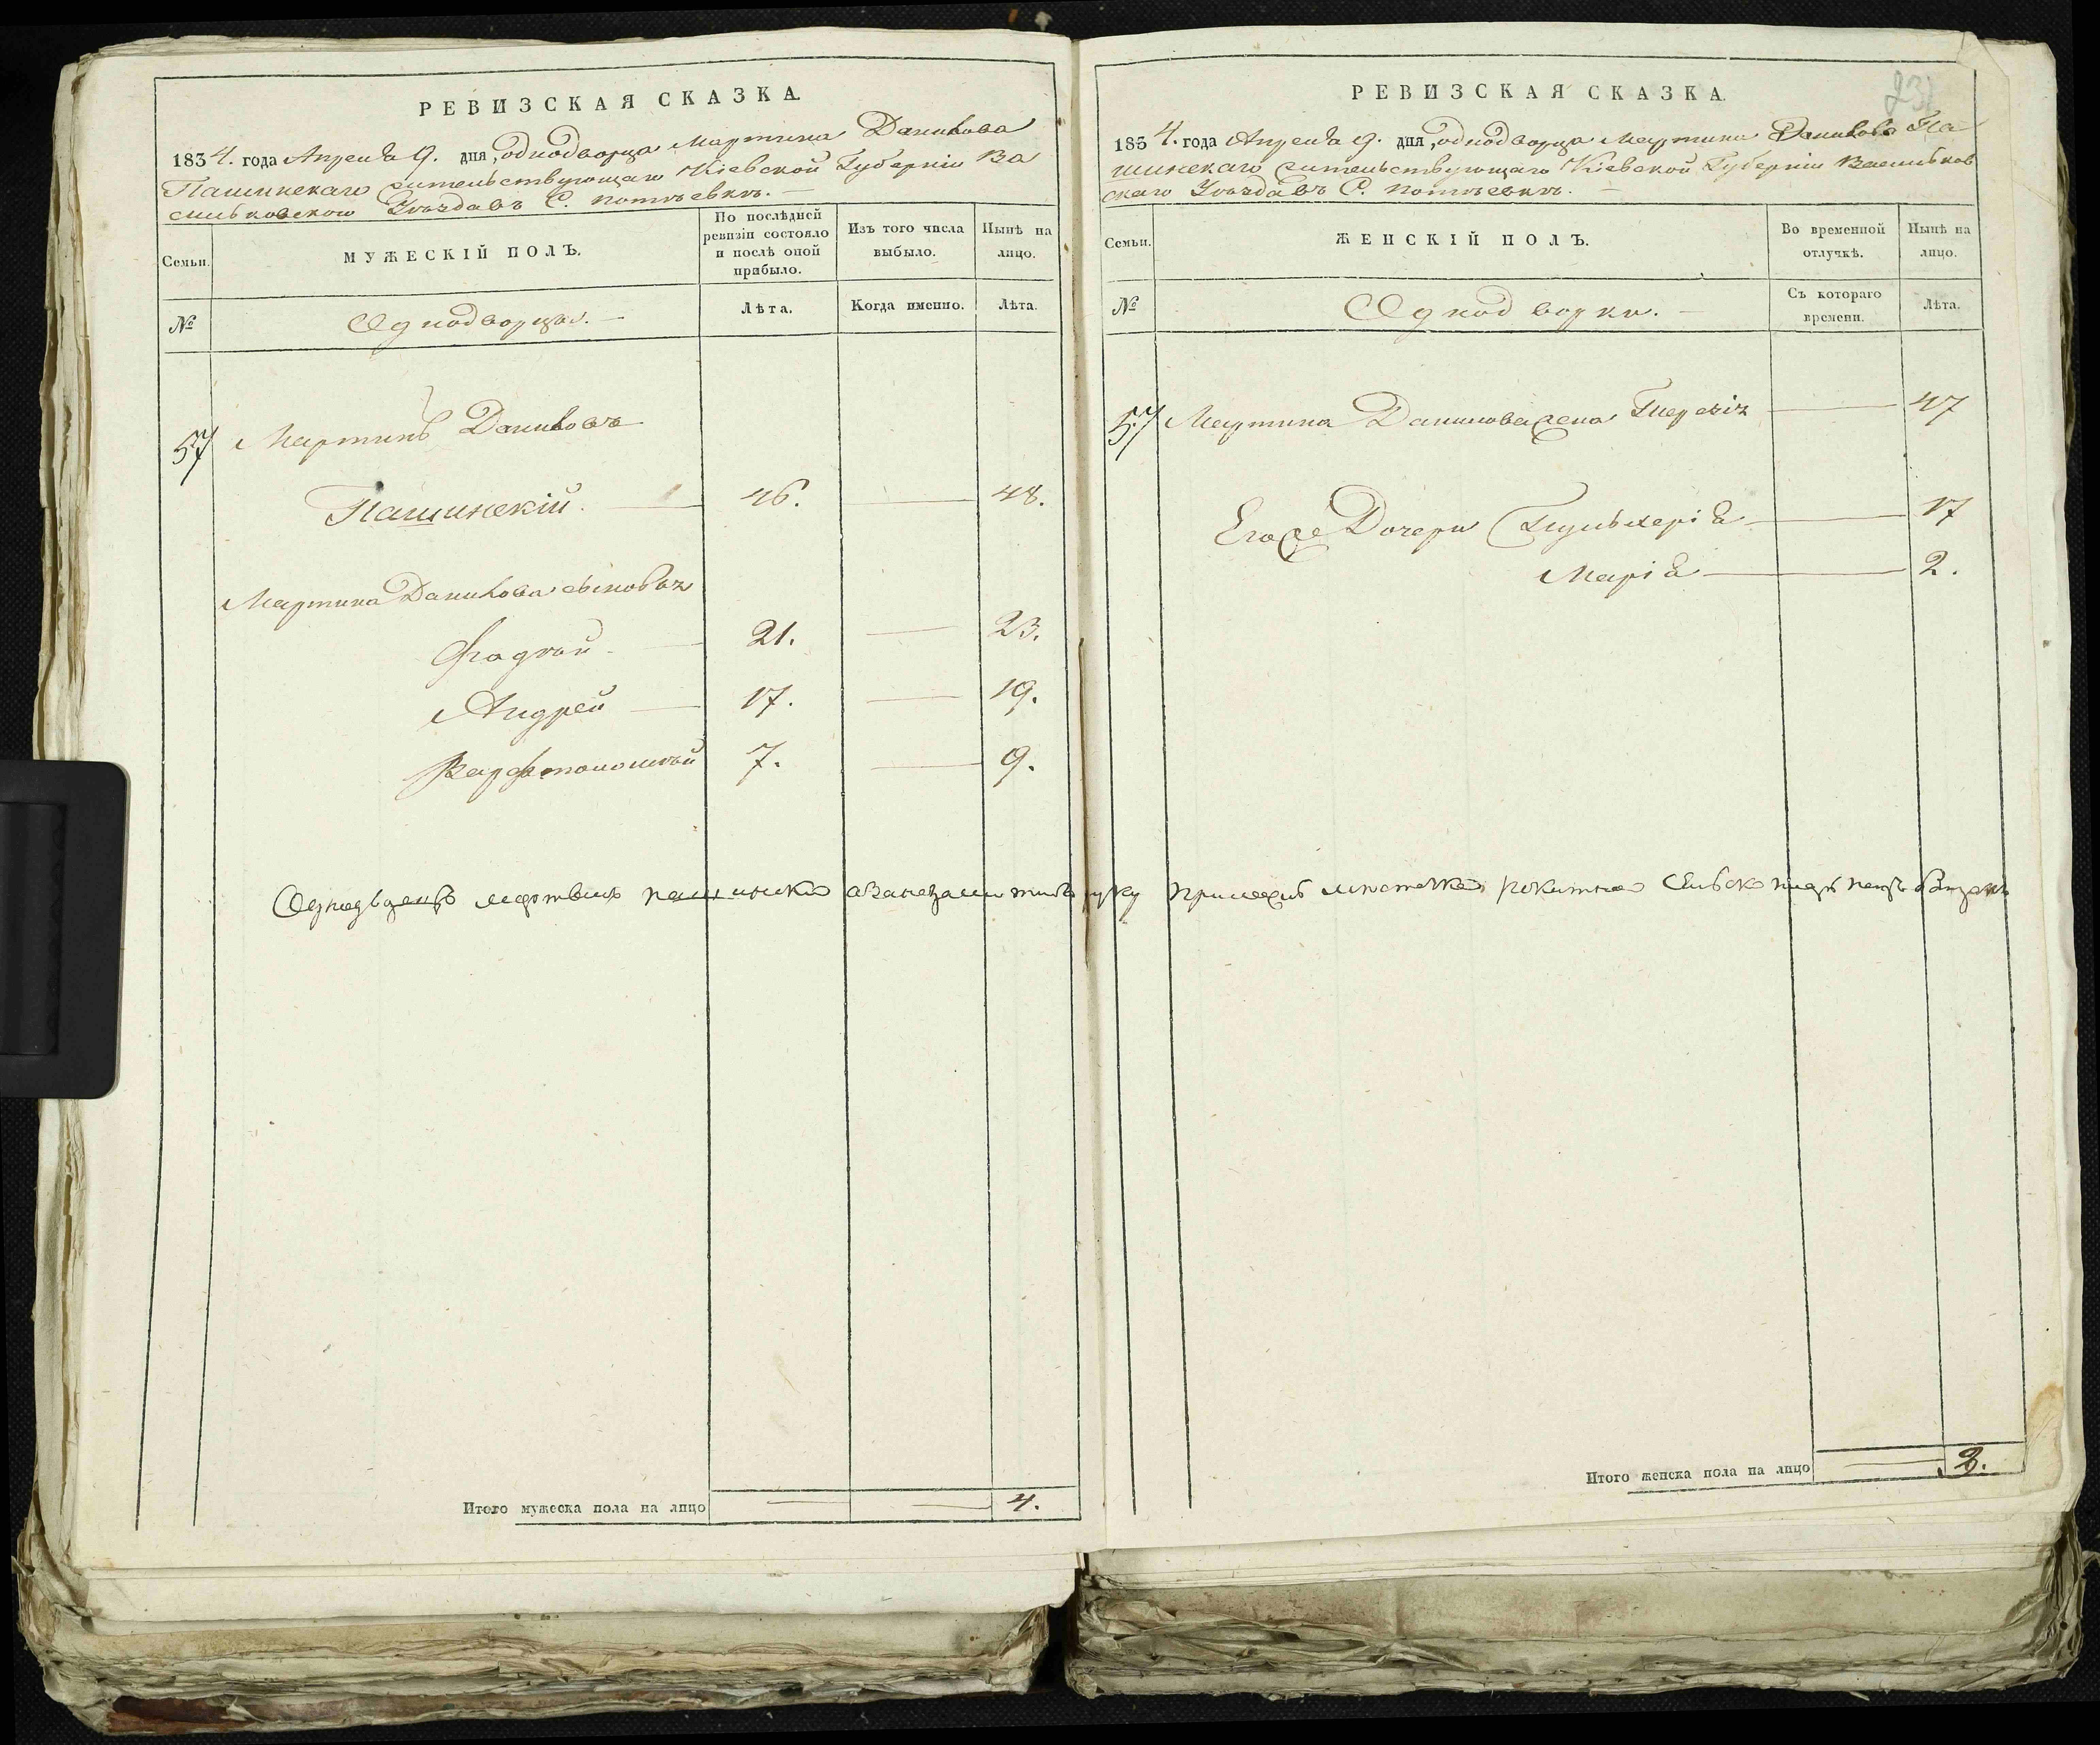 РЕВИЗСКАЯ СКАЗКА.
1834. года Апреля 9. дня, однодворца Мартина Данилова
Пашинскаго жительствующаго Кіевской Губерніи Ва
сильковского Уѣзда въ С. Потіевкѣ. —
Семьи.
МУЖЕСКІЙ ПОЛЪ.
По послѣдней ревизіи состояло и послѣ оной прибыло.
Изъ того числа выбыло.
Нынѣ на лицо.
№
Однодворцы. —
Лѣта.
Когда именно.
Лѣта.
57 Мартинъ Даниловъ
Пашинскій. — 46. — 48.
Мартина Данилова сыновья
Фадѣй — 21. — 23.
Андрей — 17. — 19.
Варфоломѣй 7. — 9.
Итого мужеска пола на лицо — — 4.
231
РЕВИЗСКАЯ СКАЗКА.
1834. года Апреля 9. дня, однодворца Мартина Данилова Па
шинскаго жительствующаго Кіевской Губерніи Васильков
скаго Уѣзда въ С. Потіевкѣ. —
Семьи.
ЖЕНСКІЙ ПОЛЪ.
Во временной отлучкѣ.
Нынѣ на лицо.
№
Однодворки. —
Съ котораго времени.
Лѣта.
57 Мартина Данилова жена — 47
Его же Дочери Пульхерія — 17
Марія — 2.
Однодворецъ Мартынъ Пашинский руку приложилъ
Итого женска пола на лицо — 3.